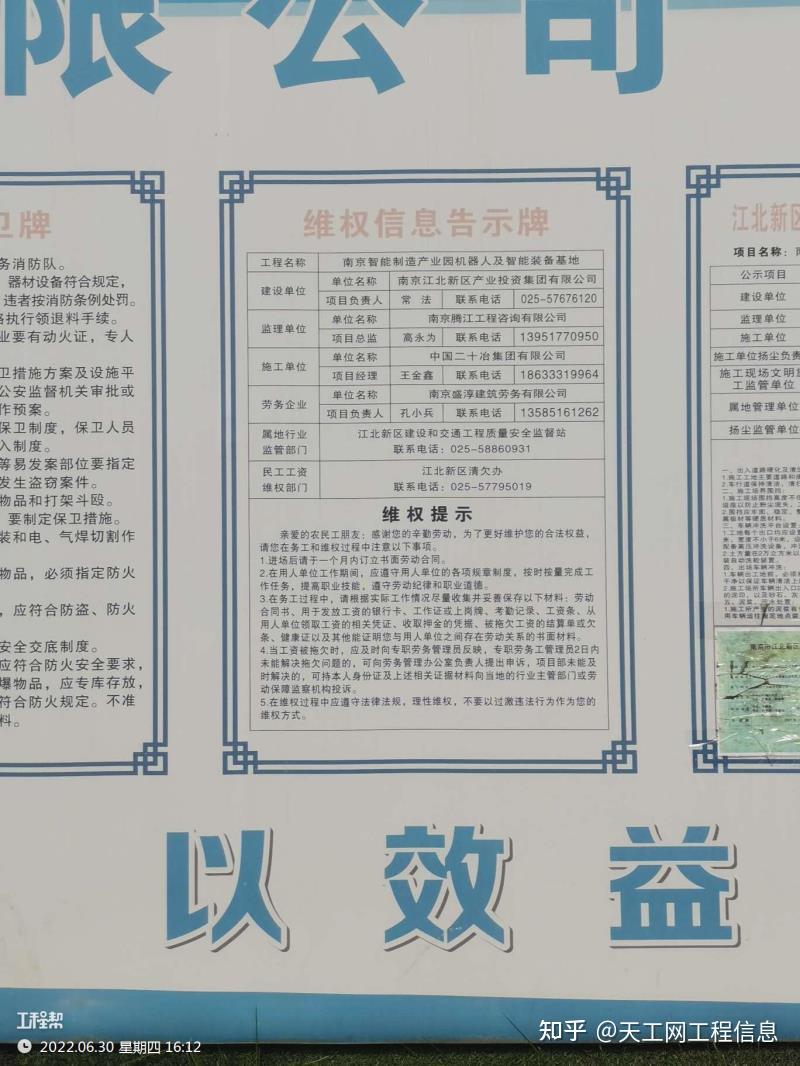 限公司
卫牌
务消防队。
器材设备符合规定，
违者按消防条例处罚。
格执行领退料手续。
业要有动火证，专人
卫措施方案及设施平
公安监督机关审批或
作预案。
保卫制度，保卫人员
入制度。
等易发案部位要指定
发生盗窃案件。
物品和打架斗殴。
要制定保卫措施。
装和电、气焊切割作
物品，必须指定防火
，应符合防盗、防火
安全交底制度。
应符合防火安全要求，
爆物品，应专库存放，
符合防火规定。不准
料。
维权信息告示牌
工程名称 南京智能制造产业园机器人及智能装备基地
建设单位 单位名称 南京江北新区产业投资集团有限公司
项目负责人 常 法 联系电话 025-57676120
监理单位 单位名称 南京腾江工程咨询有限公司
项目总监 高永为 联系电话 13951770950
施工单位 单位名称 中国二十冶集团有限公司
项目经理 王金鑫 联系电话 18633319964
劳务企业 单位名称 南京盛淳建筑劳务有限公司
项目负责人 孔小兵 联系电话 13585161262
属地行业 江北新区建设和交通工程质量安全监督站
监管部门 联系电话：025-58860931
民工工资 江北新区清欠办
维权部门 联系电话：025-57795019
维权提示
亲爱的农民工朋友：感谢您的辛勤劳动，为了更好维护您的合法权益，
请您在务工和维权过程中注意以下事项。
1.进场后请于一个月内订立书面劳动合同。
2.在用人单位工作期间，应遵守用人单位的各项规章制度，按时按量完成工
作任务，提高职业技能，遵守劳动纪律和职业道德。
3.在务工过程中，请根据实际工作情况尽量收集并妥善保存以下材料：劳动
合同书、用于发放工资的银行卡、工作证或上岗牌、考勤记录、工资条、从
用人单位领取工资的相关凭证、收取押金的凭据、被拖欠工资的结算单或欠
条、健康证以及其他能证明您与用人单位之间存在劳动关系的书面材料。
4.当工资被拖欠时，应及时向专职劳务管理员反映，专职劳务工管理员2日内
未能解决拖欠问题的，可向劳务管理办公室负责人提出申诉，项目部未能及
时解决的，可持本人身份证及上述相关证据材料向当地的行业主管部门或劳
动保障监察机构投诉。
5.在维权过程中应遵守法律法规，理性维权，不要以过激违法行为作为您的
维权方式。
江北新区
项目名称：
公示项目
建设单位
监理单位
施工单位
施工单位扬尘负责
施工现场文明施
工监管单位
属地管理单位
扬尘监管单位
南京市江北新区
以效益
工程帮
2022.06.30 星期四 16:12
知乎 @天工网工程信息